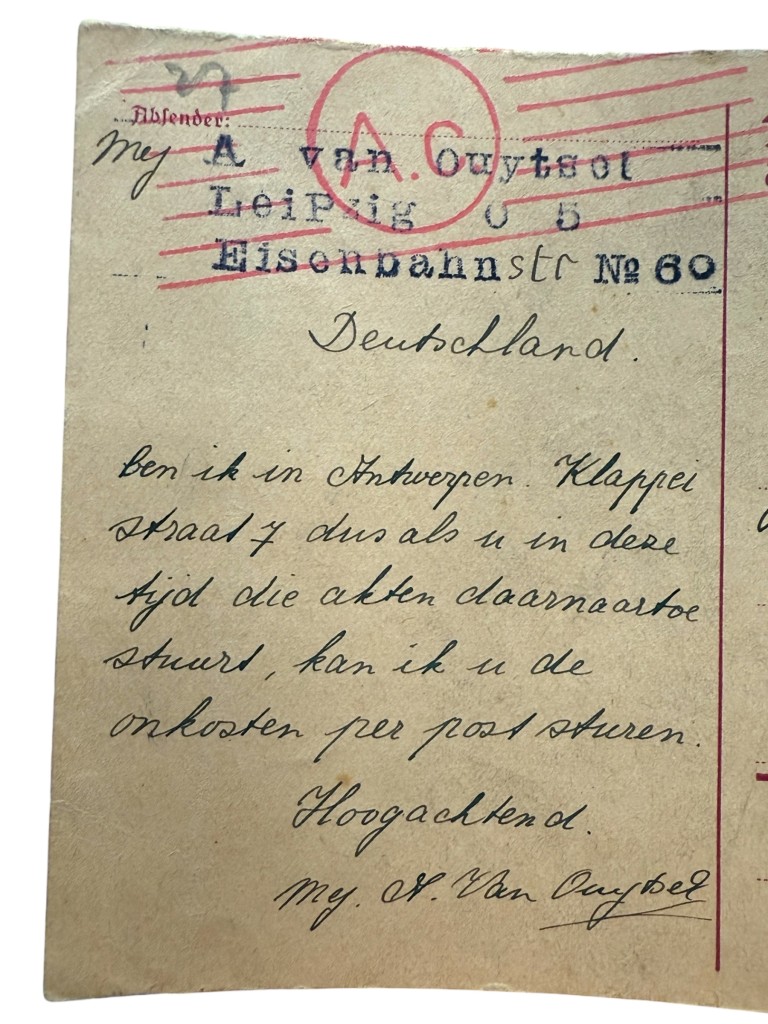 27
Absender:
A.C
Mej A van Ouytsel
Leipzig O 5
Eisenbahnstr № 60
Deutschland.
ben ik in Antwerpen. Klappei
straat 7 dus als u in deze
tijd die akten daarnaartoe
stuurt, kan ik u de
onkosten per post sturen.
Hoogachtend.
Mej. A. Van Ouytsel